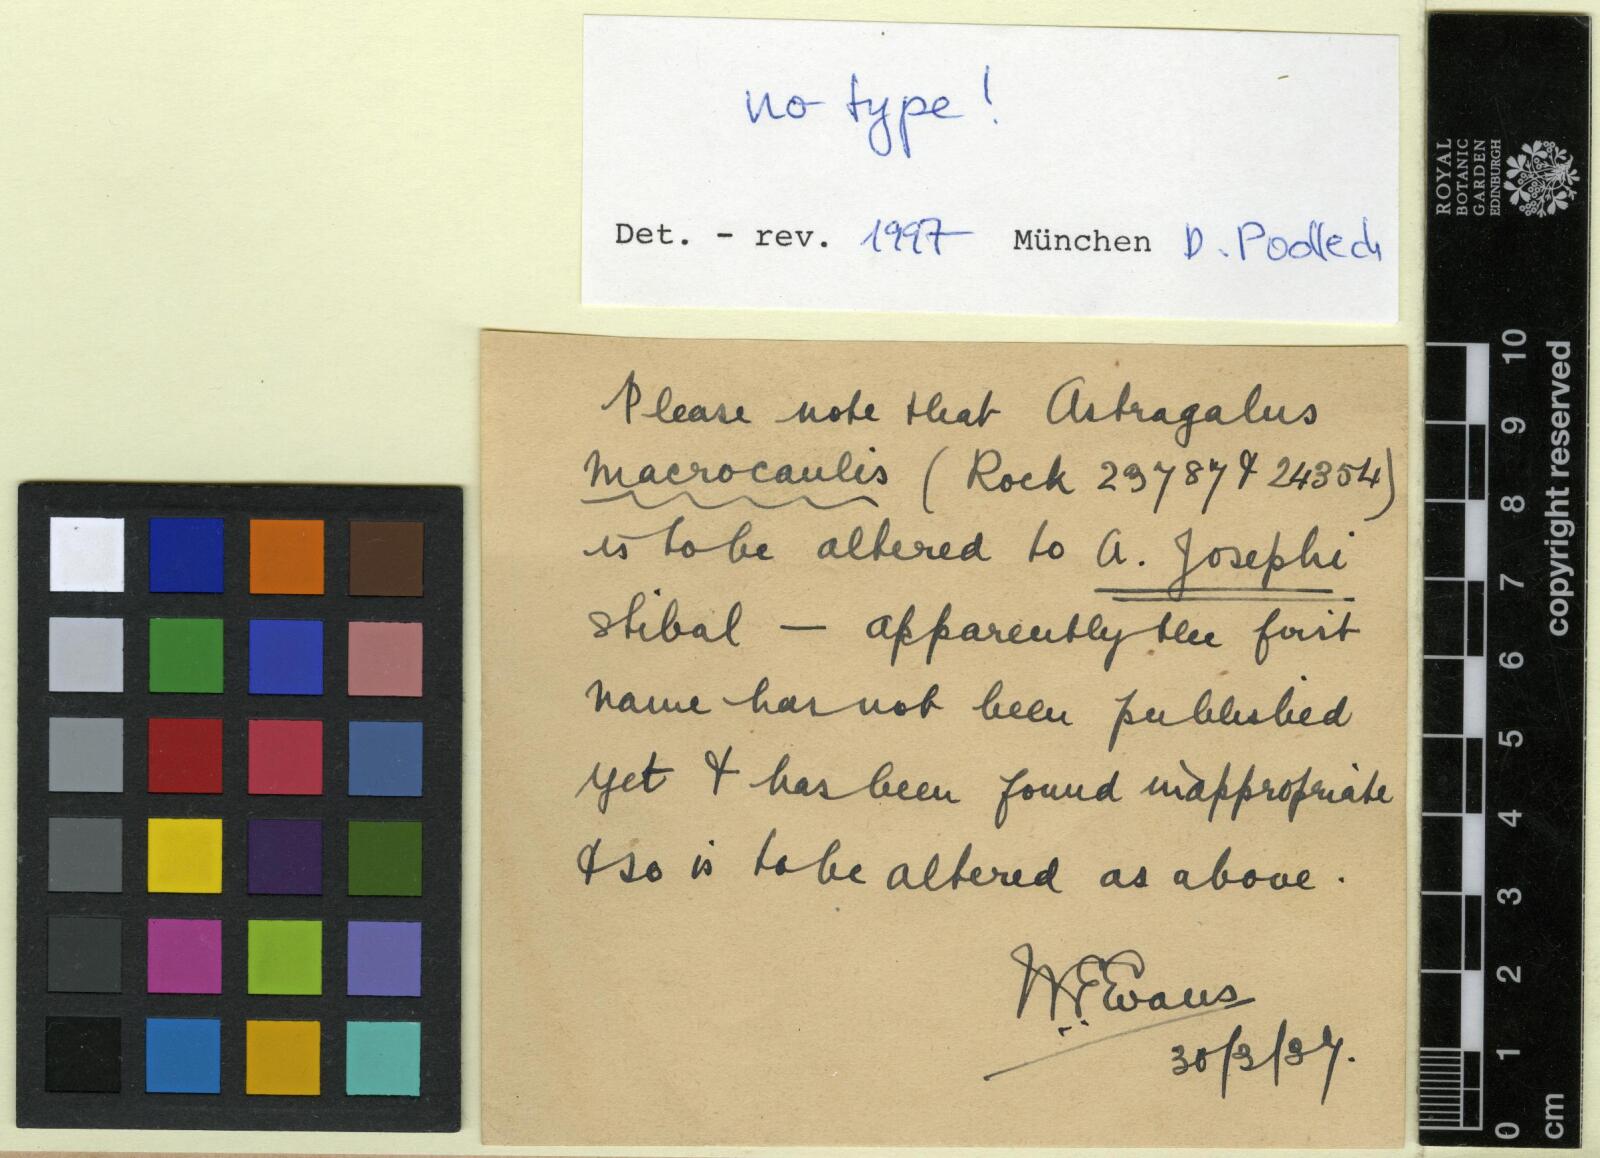 no type!
Det. - rev. 1997 München D. Podlech
Please note that Astragalus
macrocaulis (Rock 23787 & 24354)
is to be altered to A. Josephi
Stibal — apparently the first
name has not been published
yet & has been found inappropriate
& so is to be altered as above.
WEEvans
30/3/37.
ROYAL
BOTANIC
GARDEN
EDINBURGH
copyright reserved
10
9
8
7
6
5
4
3
2
1
0
cm